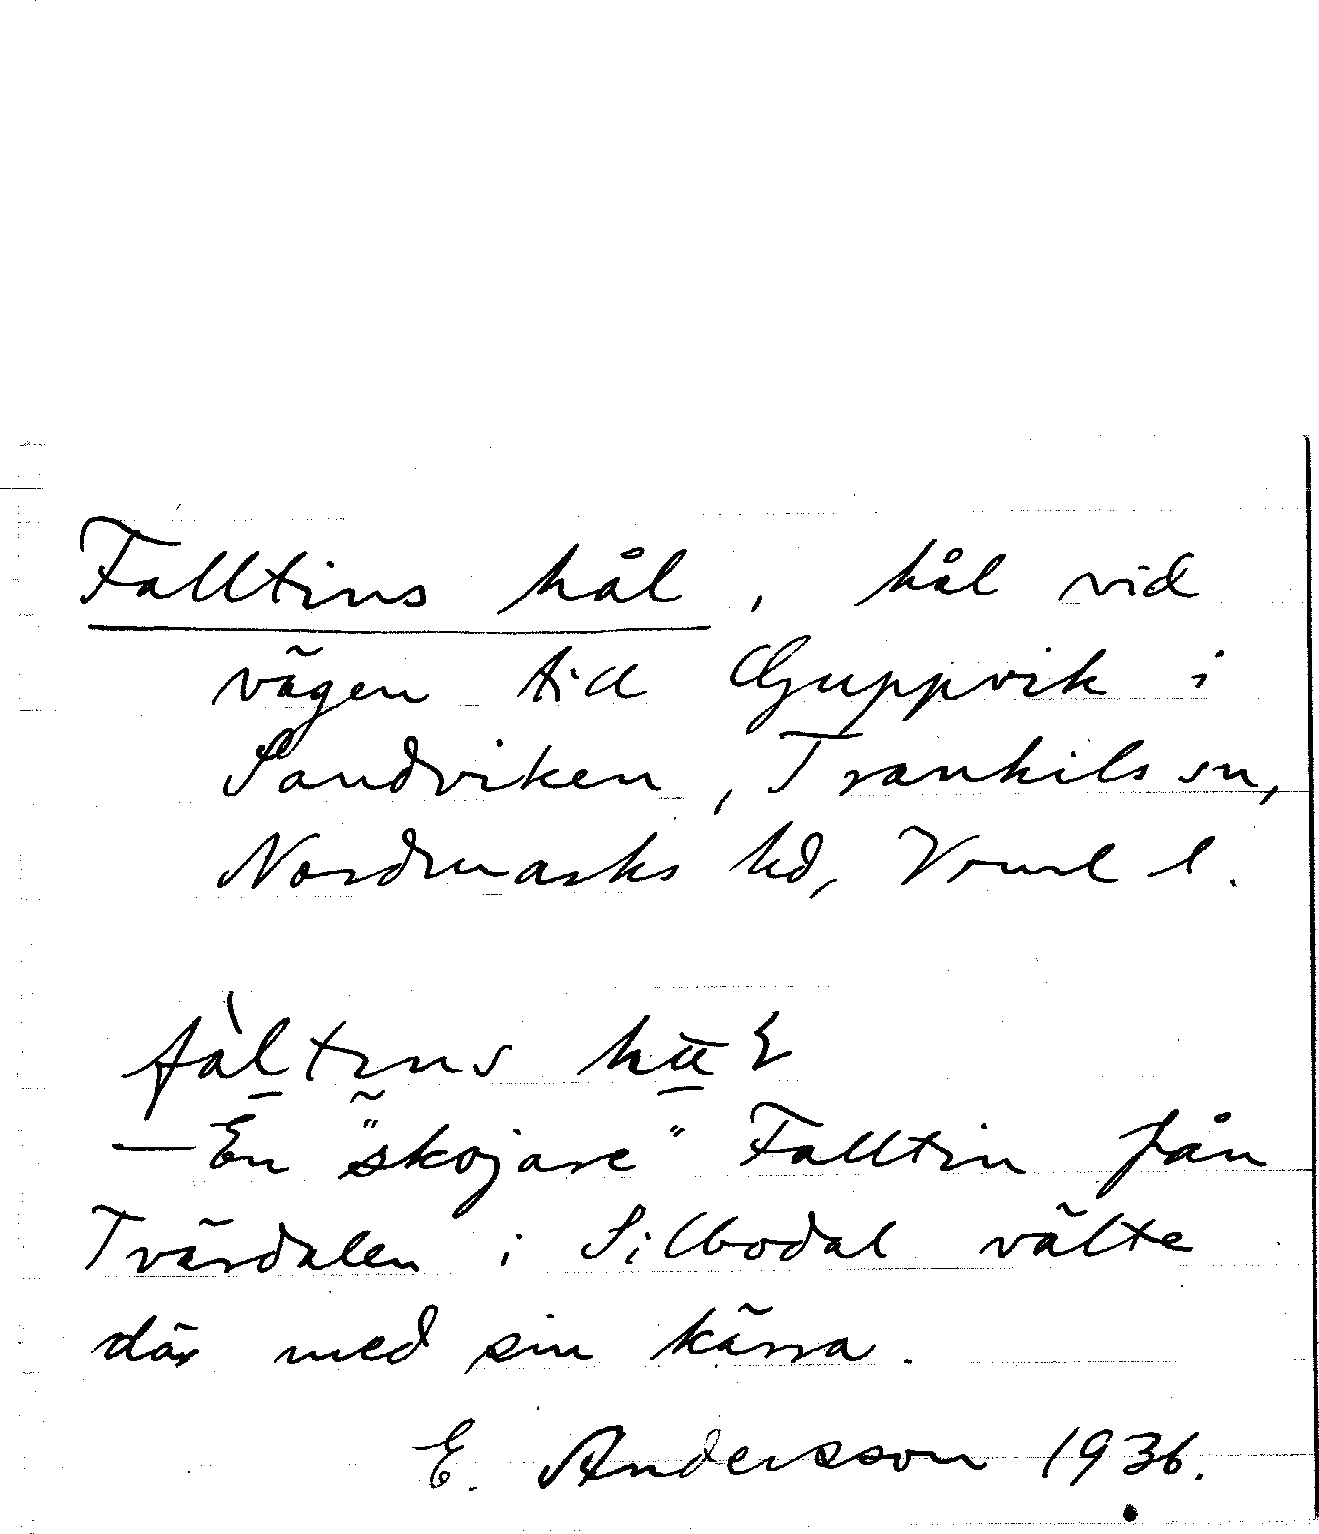 Falltins hål, hål vid
vägen till Guppvik i
Sandviken, Trankils sn,
Nordmarks hd, Vrml l.
— En "skojare" Falltin från
Tvärdalen i Silbodal välte
där med sin kärra.
E. Andersson 1936.